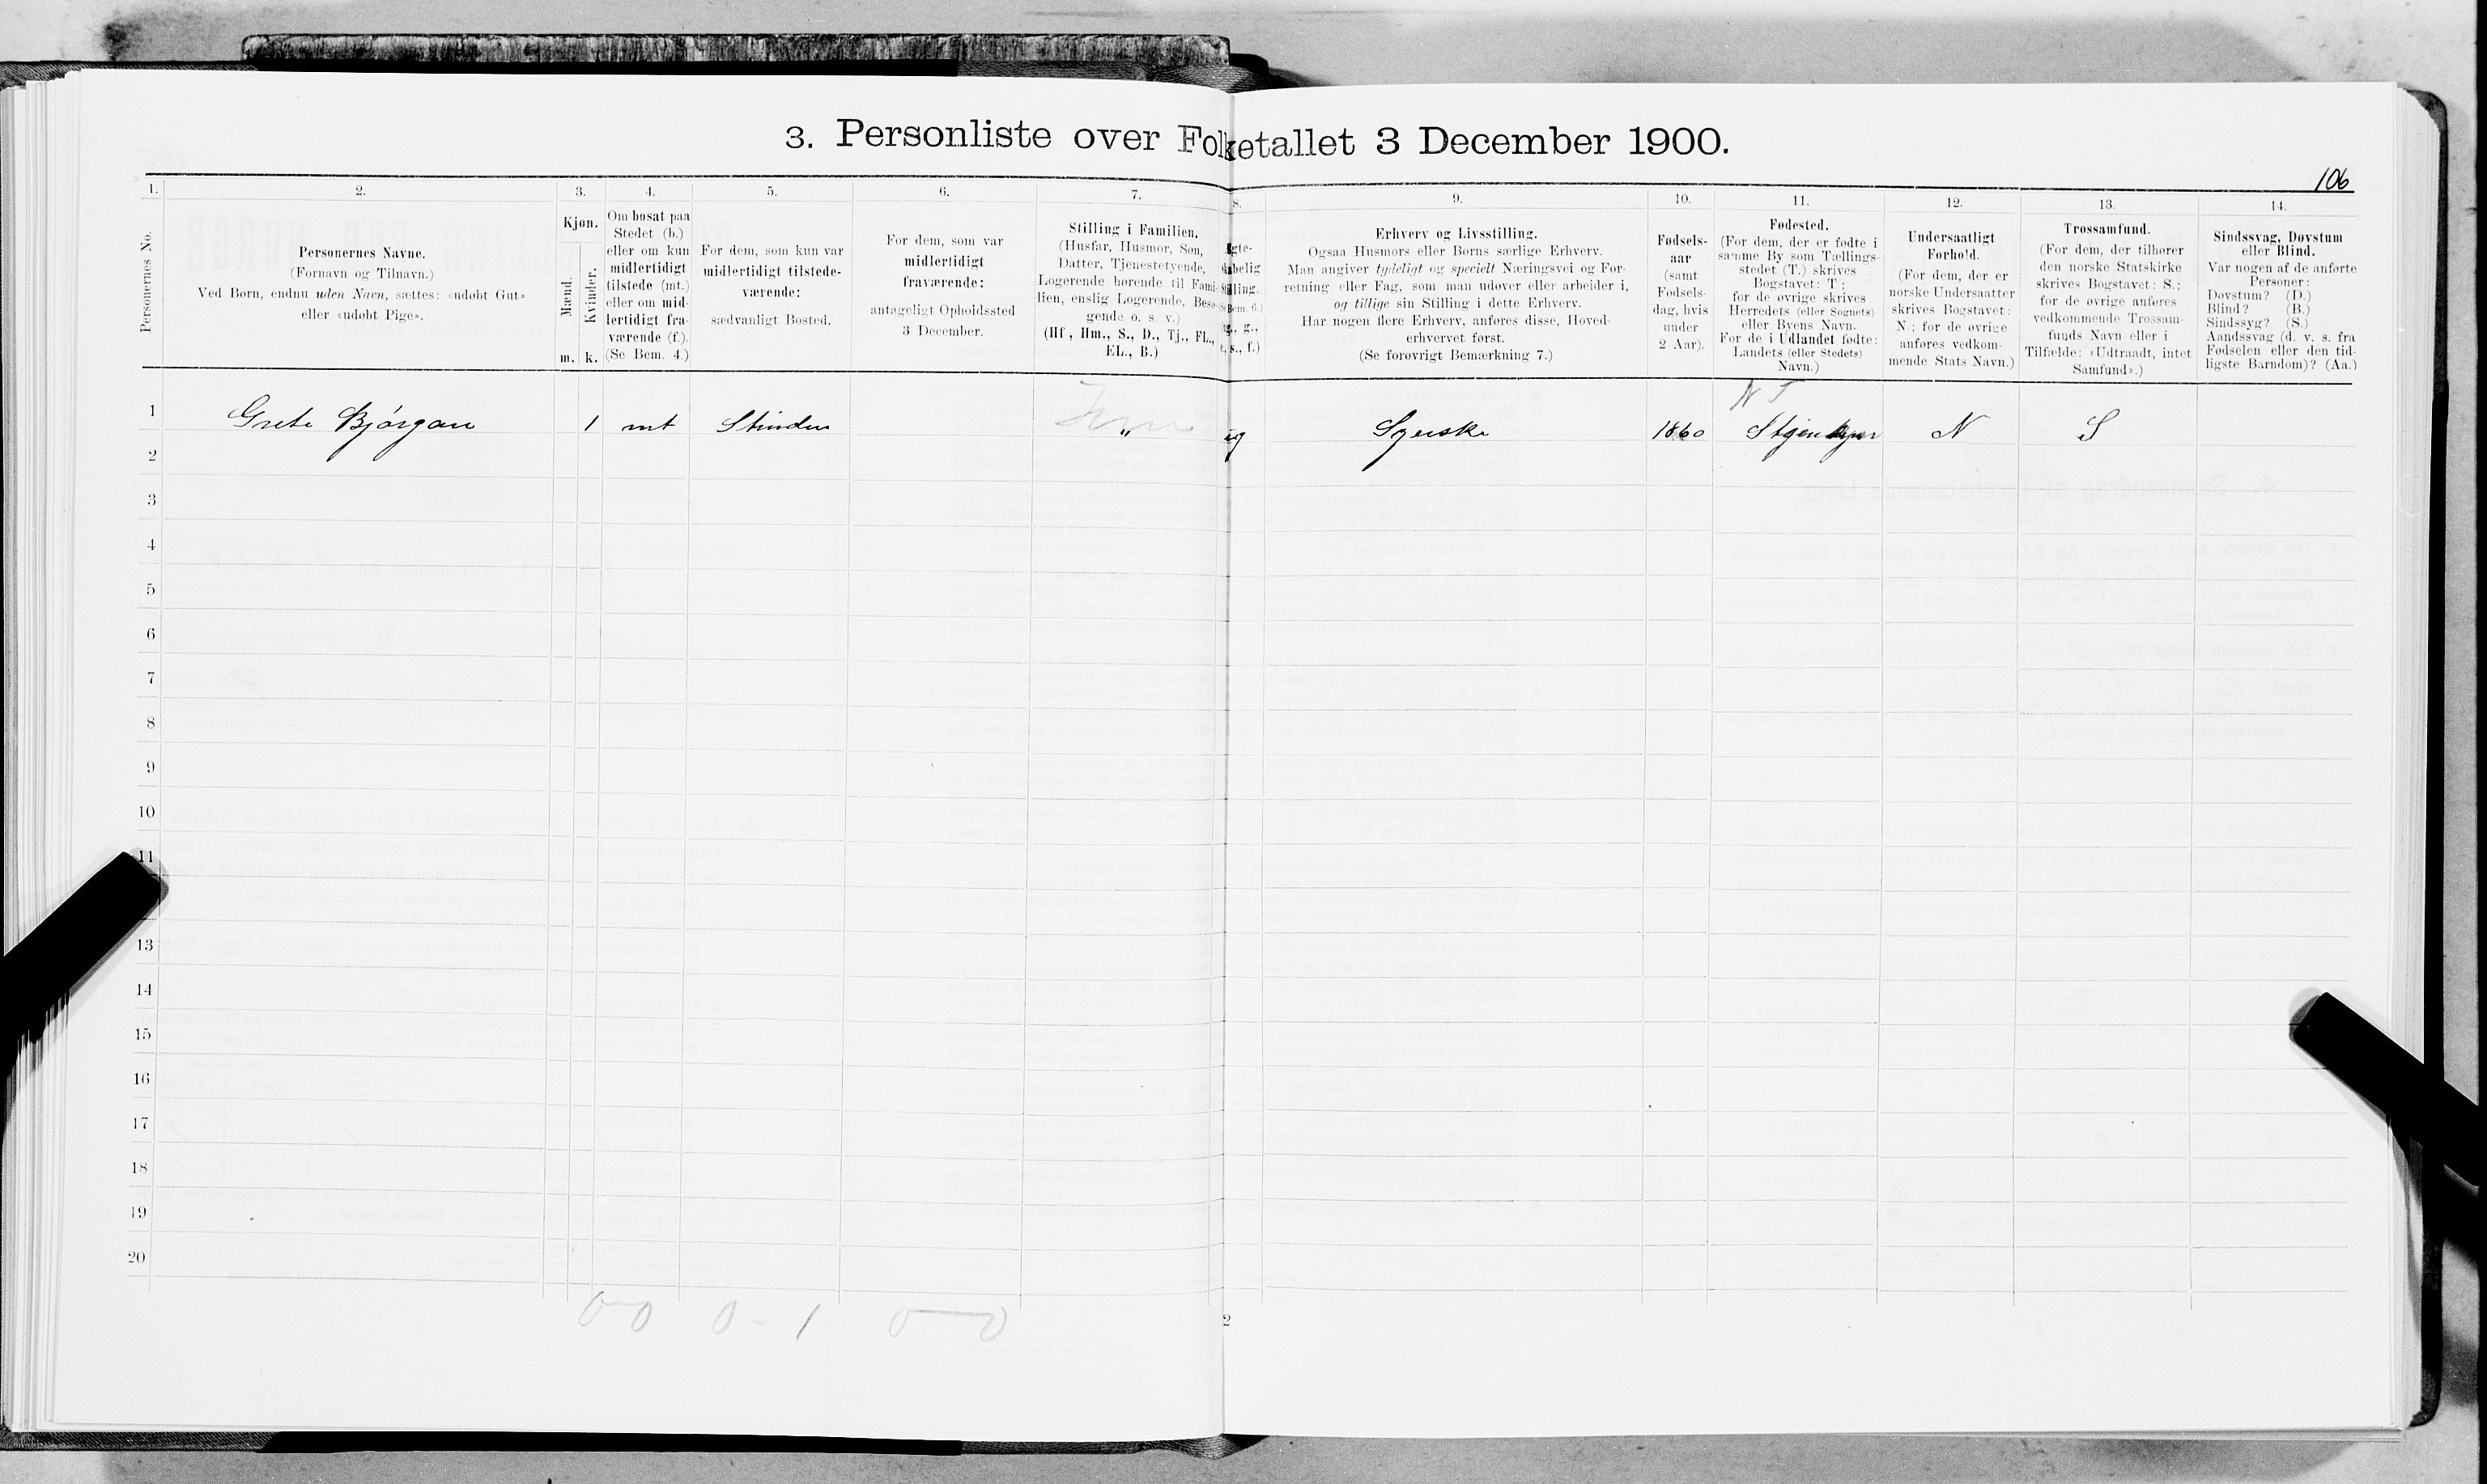 3. Personliste over Folketallet 3 December 1900.
106
1. 2. 3. 4. 5. 6. 7. 8. 9. 10. 11. 12. 13. 14.
Personernes No.
Personernes Navne.
(Fornavn og Tilnavn.)
Ved Børn, endnu uden Navn, sættes: «udøbt Gut»
eller «udøbt Pige».
Kjøn.
Mænd.
Kvinder.
m. k.
Om bosat paa
Stedet (b.)
eller om kun
midlertidigt
tilstede (mt.)
eller om mid-
lertidigt fra-
værende (f.).
(Se Bem. 4.)
For dem, som kun var
midlertidigt tilstede-
værende:
sædvanligt Bosted.
For dem, som var
midlertidigt
fraværende:
antageligt Opholdssted
3 December.
Stilling i Familien.
(Husfar, Husmor, Søn,
Datter, Tjenestetyende,
Logerende hørende til Fami-
lien, enslig Logerende, Besø-
gende o. s. v.)
(Hf., Hm., S., D., Tj., FL.,
EL., B.)
gte-
belig
illing.
Bem. 6.)
g., g.,
s., f.)
Erhverv og Livsstilling.
Ogsaa Husmors eller Børns særlige Erhverv.
Man angiver tydeligt og specielt Næringsvei og For-
retning eller Fag, som man udøver eller arbeider i,
og tillige sin Stilling i dette Erhverv.
Har nogen flere Erhverv, anføres disse, Hoved-
erhvervet først.
(Se forøvrigt Bemærkning 7.)
Fødsels-
aar
(samt
Fødsels-
dag, hvis
under
2 Aar).
Fødested.
(For dem, der er fødte i
samme By som Tællings-
stedet (T.) skrives
Bogstavet: T.;
for de øvrige skrives
Herredets (eller Sognets)
eller Byens Navn.
For de i Udlandet fødte:
Landets (eller Stedets)
Navn.)
Undersaatligt
Forhold.
(For dem, der er
norske Undersaatter
skrives Bogstavet:
N.; for de øvrige
anføres vedkom-
mende Stats Navn.)
Trossamfund.
(For dem, der tilhører
den norske Statskirke
skrives Bogstavet: S.;
for de øvrige anføres
vedkommende Trossam-
funds Navn eller i
Tilfælde: «Udtraadt, intet
Samfund».)
Sindssvag, Døvstum
eller Blind.
Var nogen af de anførte
Personer:
Døvstum? (D.)
Blind? (B.)
Sindssyg? (S.)
Aandssvag (d. v. s. fra
Fødselen eller den tid-
ligste Barndom)? (Aa.)
N T
1 Grete Bjørgan 1 mt Stinden " ug Syerske 1860 Stjenkjær N S
2
3
4
5
6
7
8
9
10
11
13
14
15
16
17
18
19
20
0-0 0-1 0-0
2